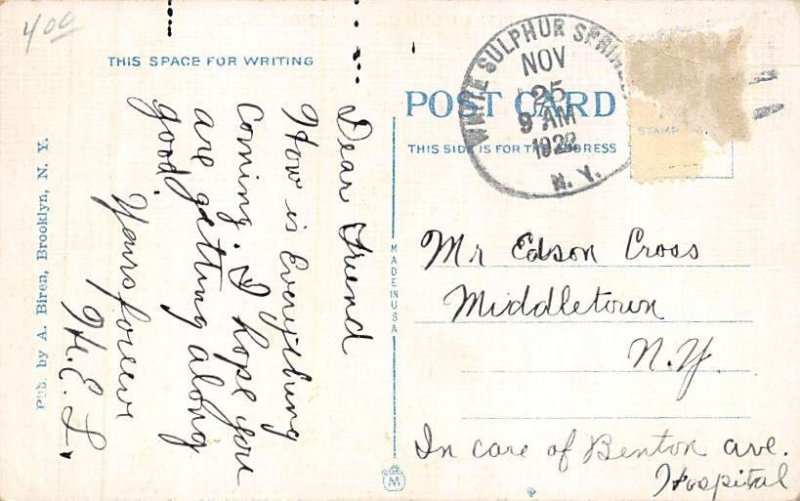 400
THIS SPACE FOR WRITING
Dear Friend
How is Everything
coming. I hope you
are getting along
good.
Yours forever
H.E.L.
Pub. by A. Biren, Brooklyn, N. Y.
MADE IN USA
M
POST CARD
THIS SIDE IS FOR THE ADDRESS
WHITE SULPHUR SPRINGS
NOV
25
9 AM
1922
N. Y.
STAMP
Mr Edson Cross
Middletown
N.Y.
In care of Benton ave.
Hospital